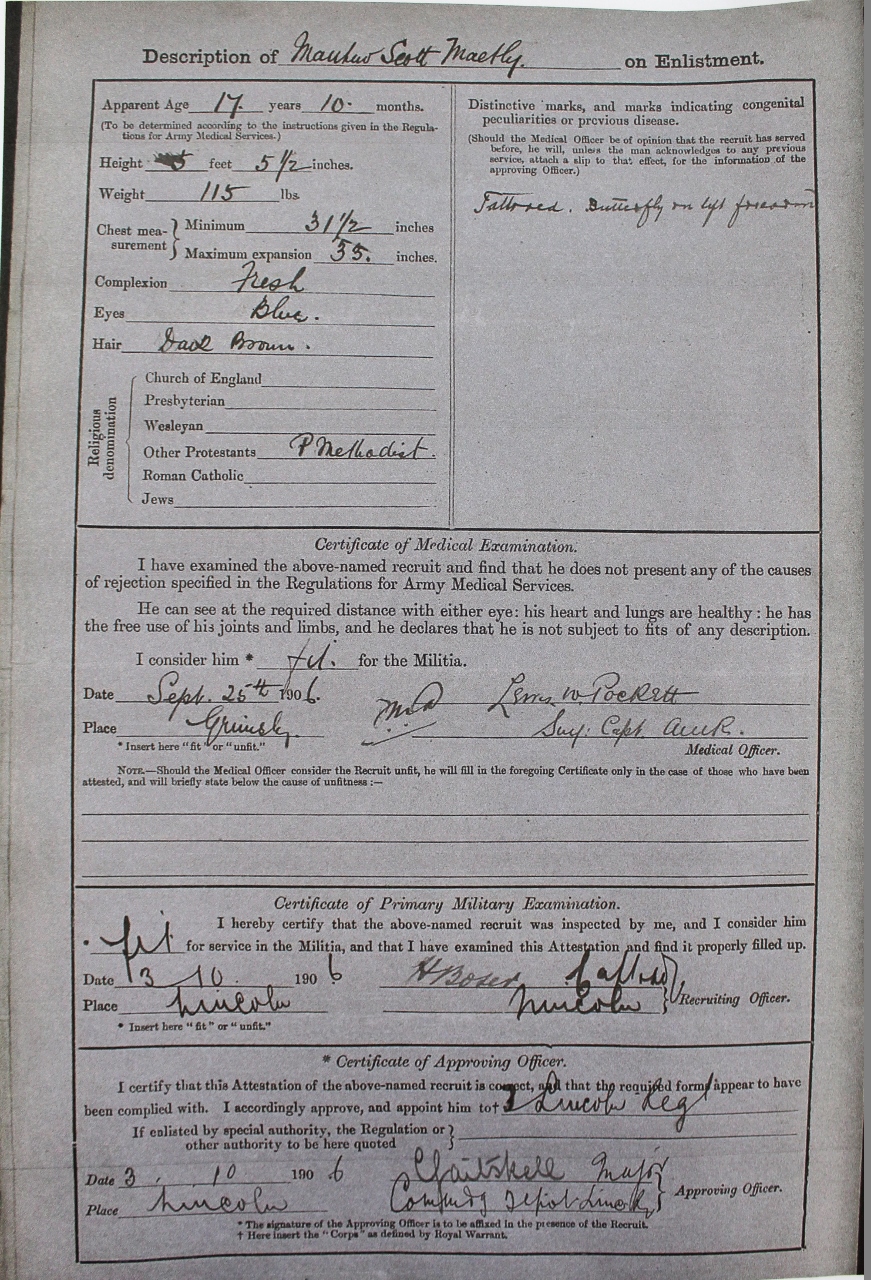 Description of Scott on Enlistment.
Apparent Age 17. years 10. months.
(To be determined according to the instructions given in the Regula-
tions for Army Medical Services.)
Height 5 feet 5 1/2 inches.
Weight 115 lbs.
Chest mea-
surement
Minimum 31 1/2 inches
Maximum expansion 35. inches.
Complexion Fresh
Eyes Blue.
Hair Dark Brown.
Religious
denomination
Church of England
Presbyterian
Wesleyan
Other Protestants P Methodist.
Roman Catholic
Jews
Distinctive marks, and marks indicating congenital
peculiarities or previous disease.
(Should the Medical Officer be of opinion that the recruit has served
before, he will, unless the man acknowledges to any previous
service, attach a slip to that effect, for the information of the
approving Officer.)
Tattooed. Butterfly on left forearm
Certificate of Medical Examination.
I have examined the above-named recruit and find that he does not present any of the causes
of rejection specified in the Regulations for Army Medical Services.
He can see at the required distance with either eye: his heart and lungs are healthy: he has
the free use of his joints and limbs, and he declares that he is not subject to fits of any description.
I consider him * fit. for the Militia.
Date Sept. 25th 1906. W. Pockett
Place Grimsby. Capt.
* Insert here "fit" or "unfit." Medical Officer.
NOTE.—Should the Medical Officer consider the Recruit unfit, he will fill in the foregoing Certificate only in the case of those who have been
attested, and will briefly state below the cause of unfitness:—
Certificate of Primary Military Examination.
I hereby certify that the above-named recruit was inspected by me, and I consider him
* fit for service in the Militia, and that I have examined this Attestation and find it properly filled up.
Date 3 10 1906
Place Lincoln Lincoln Recruiting Officer.
* Insert here "fit" or "unfit."
* Certificate of Approving Officer.
I certify that this Attestation of the above-named recruit is correct, and that the required forms appear to have
been complied with. I accordingly approve, and appoint him to† 3 Lincoln Regt
If enlisted by special authority, the Regulation or
other authority to be here quoted
Date 3. 10 1906 Major
Place Lincoln Commdg Depot Lincoln Approving Officer.
* The signature of the Approving Officer is to be affixed in the presence of the Recruit.
† Here insert the "Corps" as defined by Royal Warrant.